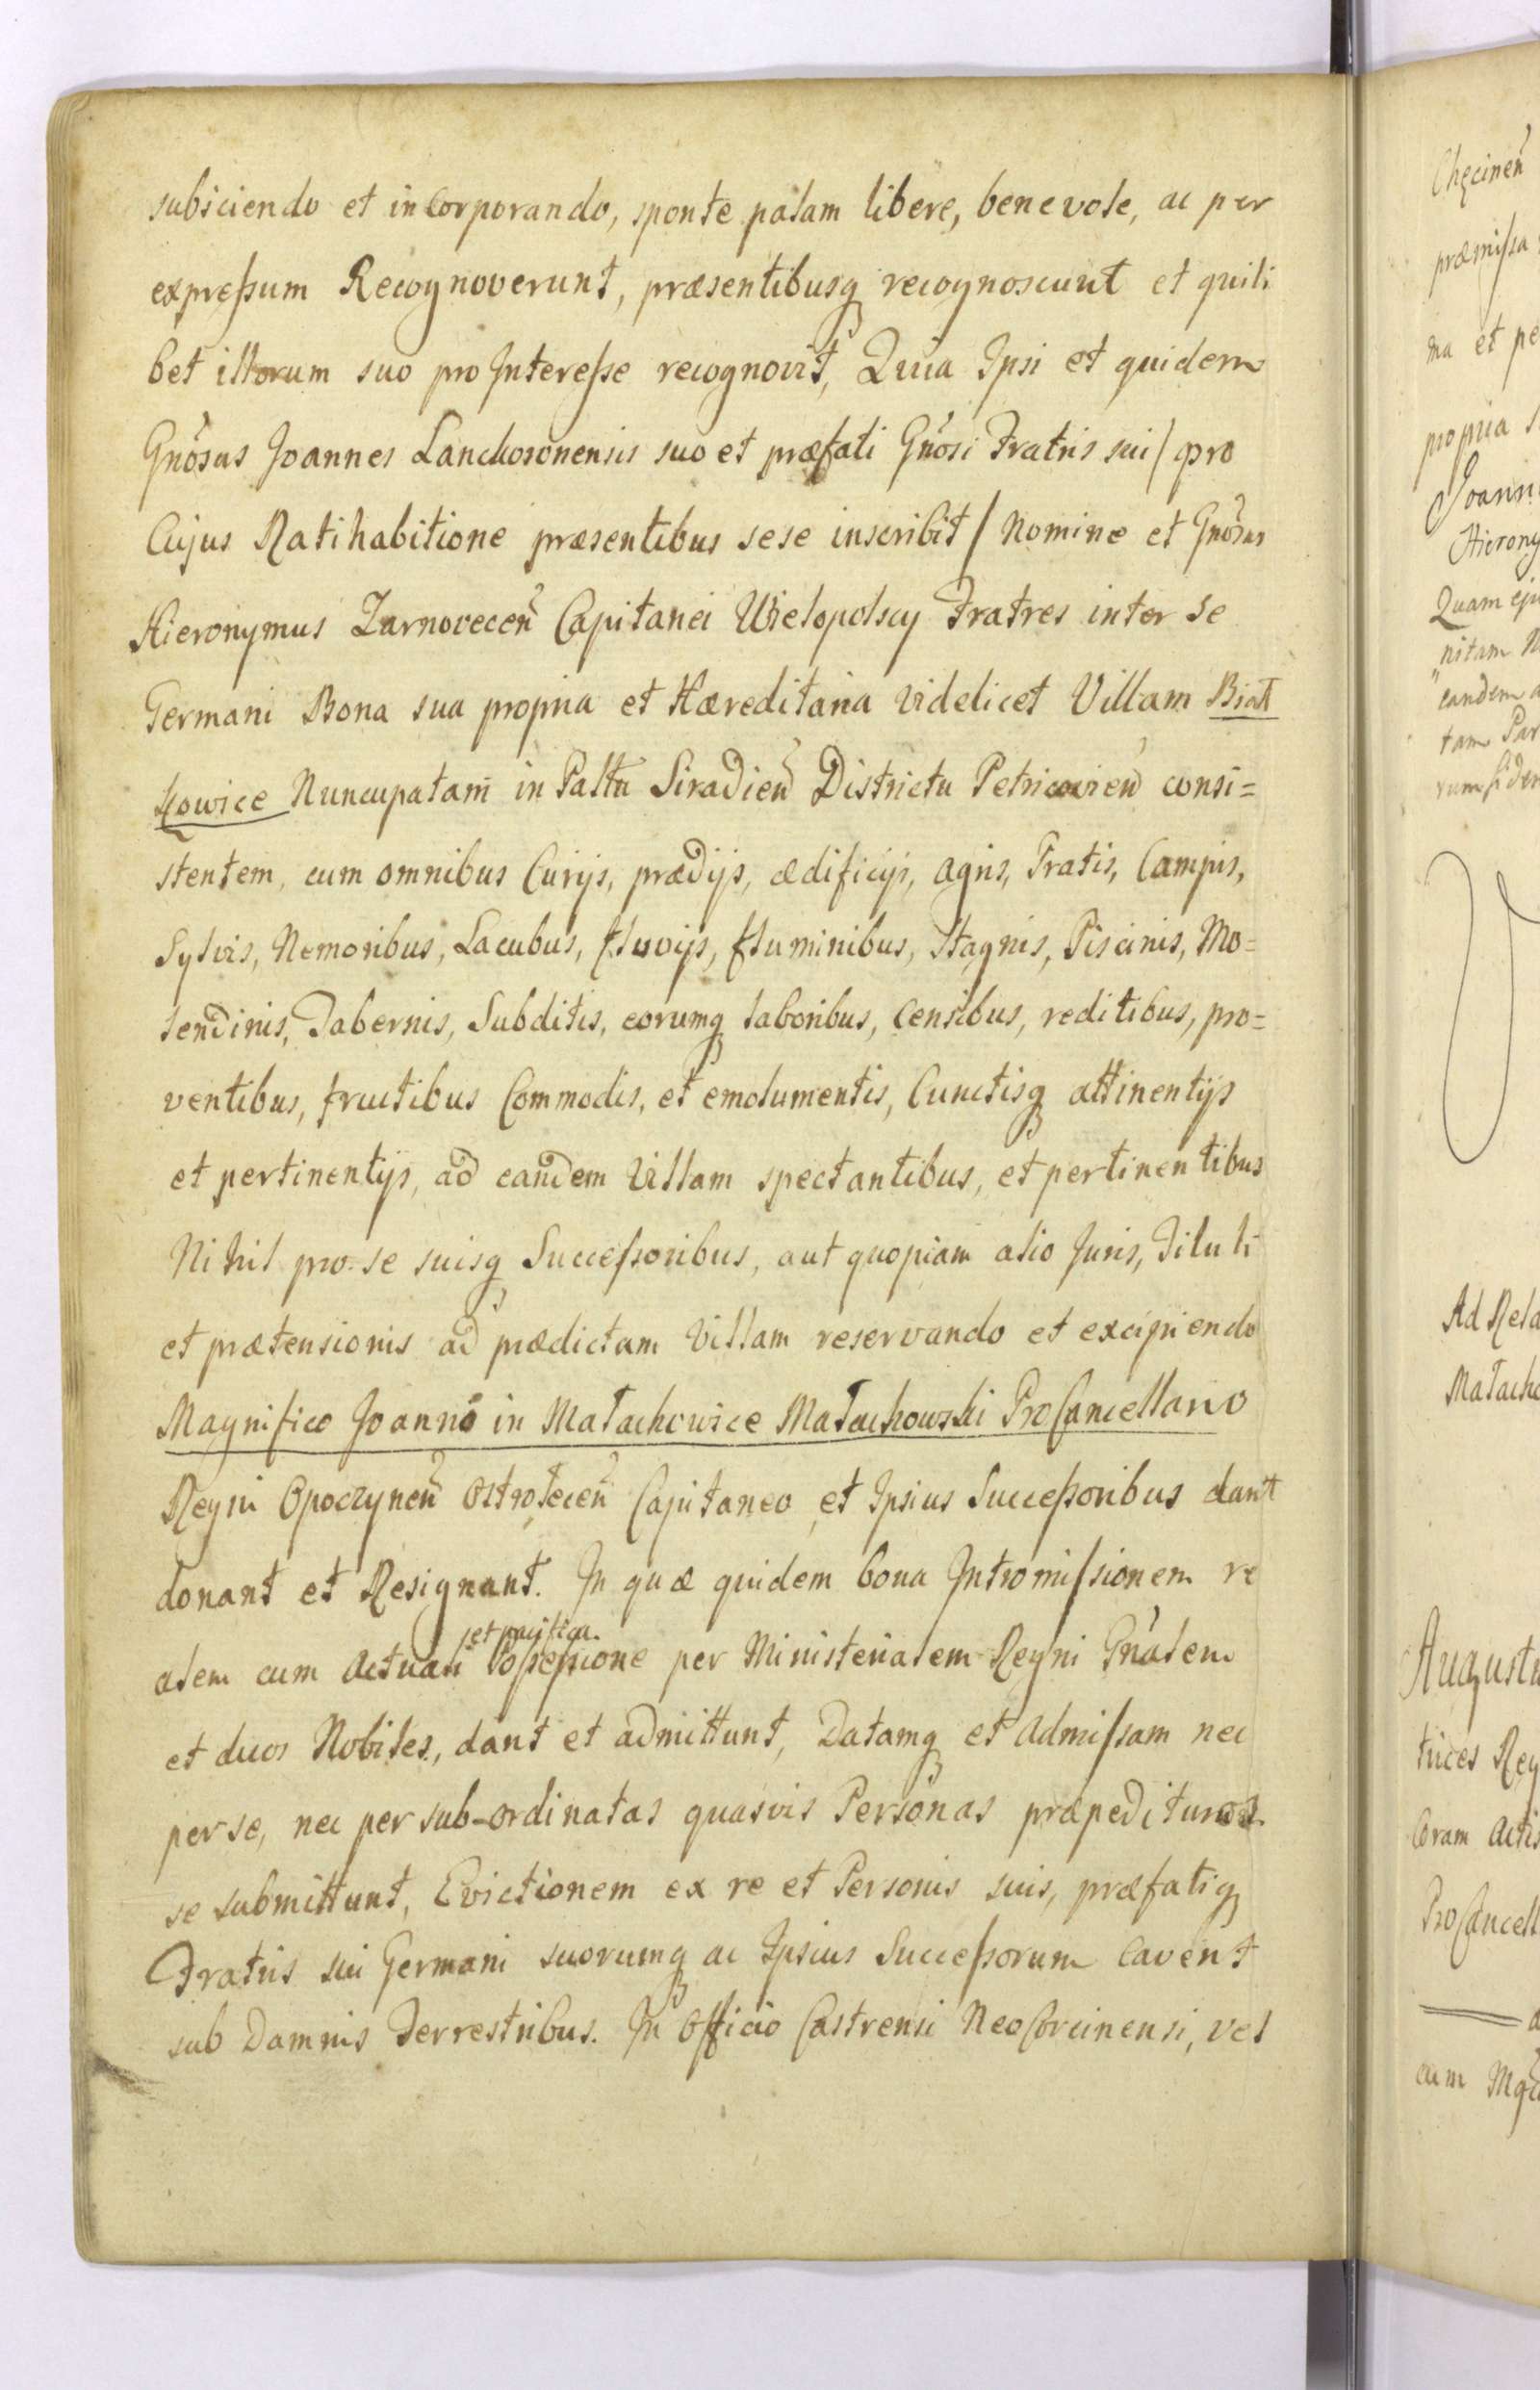 subiciendo et inCorporando, sponte palam libere, benevole, ac per
expreſsum Recognoverunt, præsentibusq recognoscunt et quili
bet illorum suo pro Intereſse recognovit, Quia Ipsi et quidem
Gnõsus Joannes Lanckoronensis suo et præfati Gnõsi Fratris sui / pro
Cujus Ratihabitione præsentibus sese inscribit / Nomine et Gnõsus
Hieronymus Zarnovecen̄ Capitanei Wielopolscy Fratres inter se
Germani Bona sua propria et Hæreditaria videlicet Villam Biał
kowice Nuncupatam in Palttu Siradien̄ Districtu Petricovien̄ consi=
stentem, cum omnibus Curijs, prædijs, ædificijs, agris, Pratis, Campis,
Sylvis, Nemoribus, Lacubus, fluvijs, fluminibus, Stagnis, Piscinis, Mo=
lendinis, Tabernis, Subditis, eorumq laboribus, Censibus, reditibus, pro=
ventibus, fructibus Commodis, et emolumentis, Cunctisq attinentijs
et pertinentijs, ad eandem Villam spectantibus, et pertinentibus
Nihil pro se suisq Succeſsoribus, aut quopiam alio Juris, Tituli
et prætensionis ad prædictam Villam reservando et excipiendo
Magnifico Joanni in Małachowice Małachowski ProCancellario
Regni Opoczynen̄ Ostrołecen̄ Capitaneo et Ipsius Succeſsoribus dant
donant et Resignant. In quæ quidem bona Intromiſsionem re
alem cum actuali et pacifica Poſseſsione per Ministerialem Regni Gnãlem
et duos Nobiles, dant et admittunt, Datamq et Admiſsam nec
per se, nec per sub-ordinatas quasvis Personas præpedituros
se submittunt, Evictionem ex re et Personis suis, præfatiq
Fratris sui Germani suorumq ac Ipsius Succeſsorum Cavent
sub Damnis Terrestribus. In Officio Castrensi NeoCorcinensi, vel
Chęcinen̄
præmiſsa
ma et pe
propria s
Joann
Hierony
Quam eju
nitam
eandem a
tam Par
rum fidem
Ad Rela
Małacho
Augustu
trices Reg
Coram Actis
ProCancell
cum